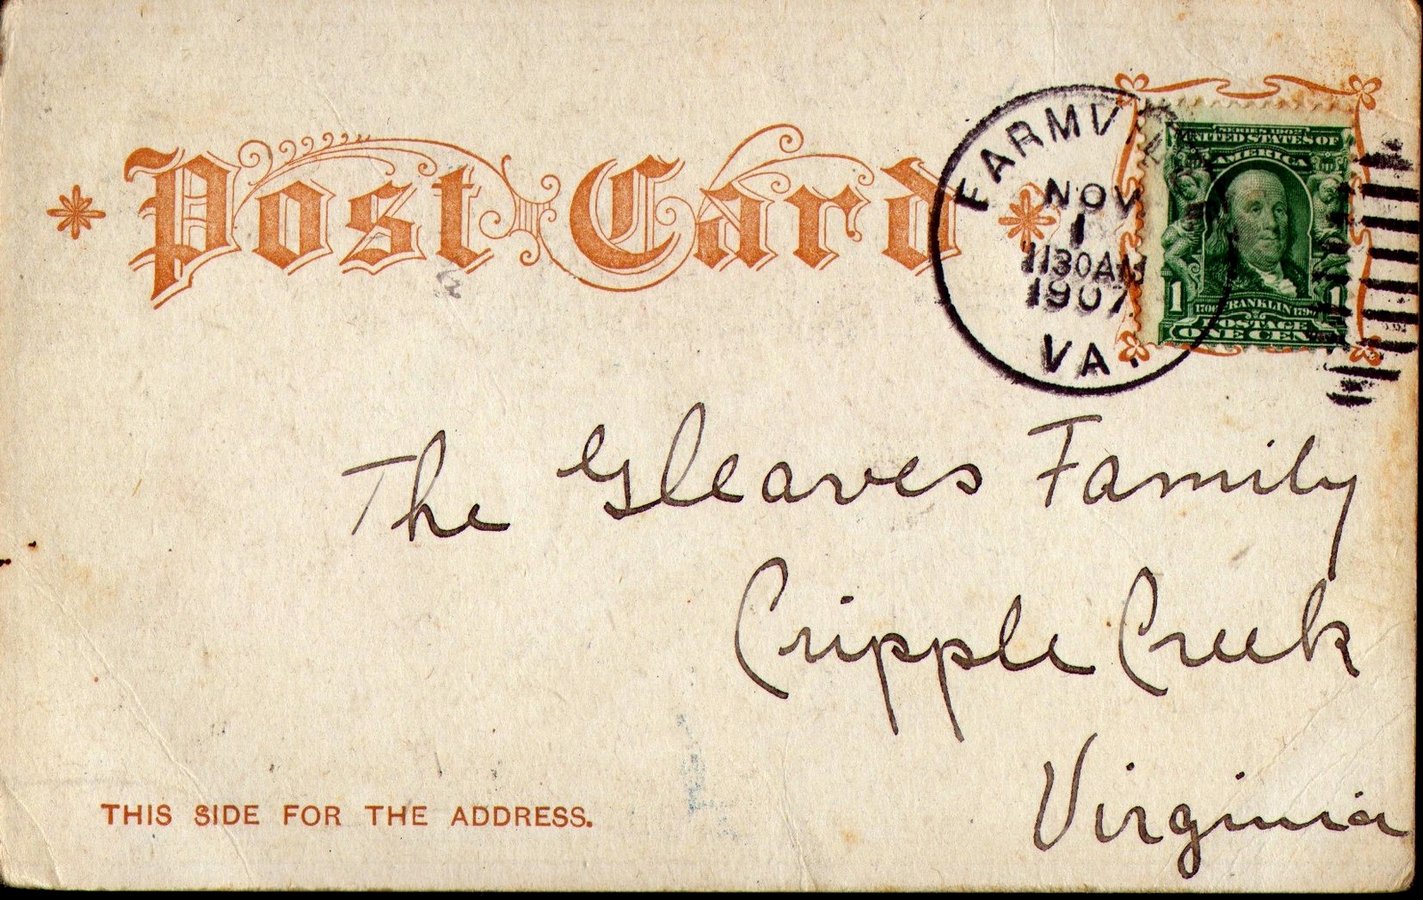 Post Card
FARMVILLE
NOV
1
1130AM
1907
VA.
SERIES 1902
UNITED STATES OF
AMERICA
1 1
FRANKLIN
POSTAGE
ONE CENT
The Gleaves Family
Cripple Creek
Virginia
THIS SIDE FOR THE ADDRESS.